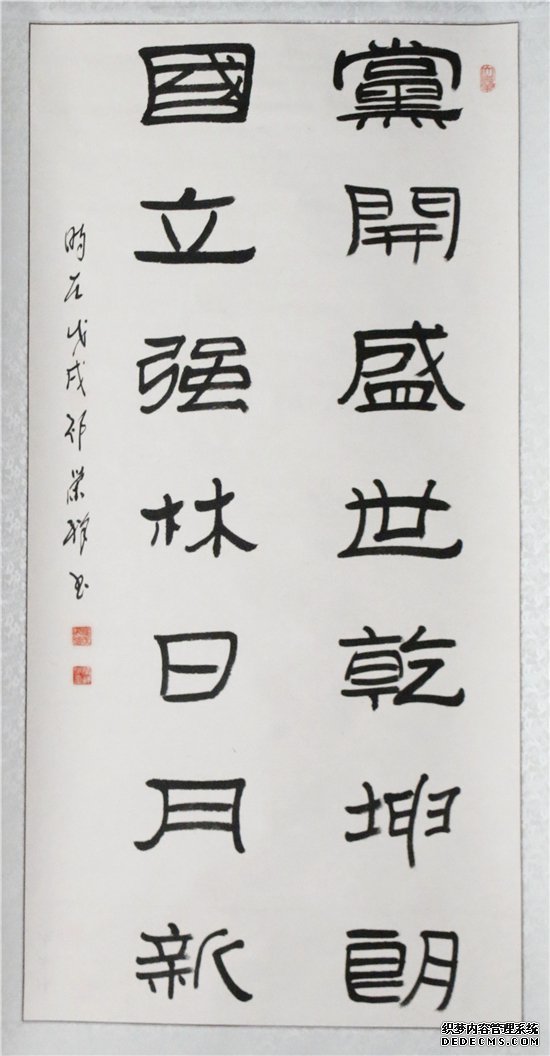 黨開盛世乾坤朗
國立强林日月新
時在戊戌祁榮祥書
织梦内容管理系统
DEDECMS.COM